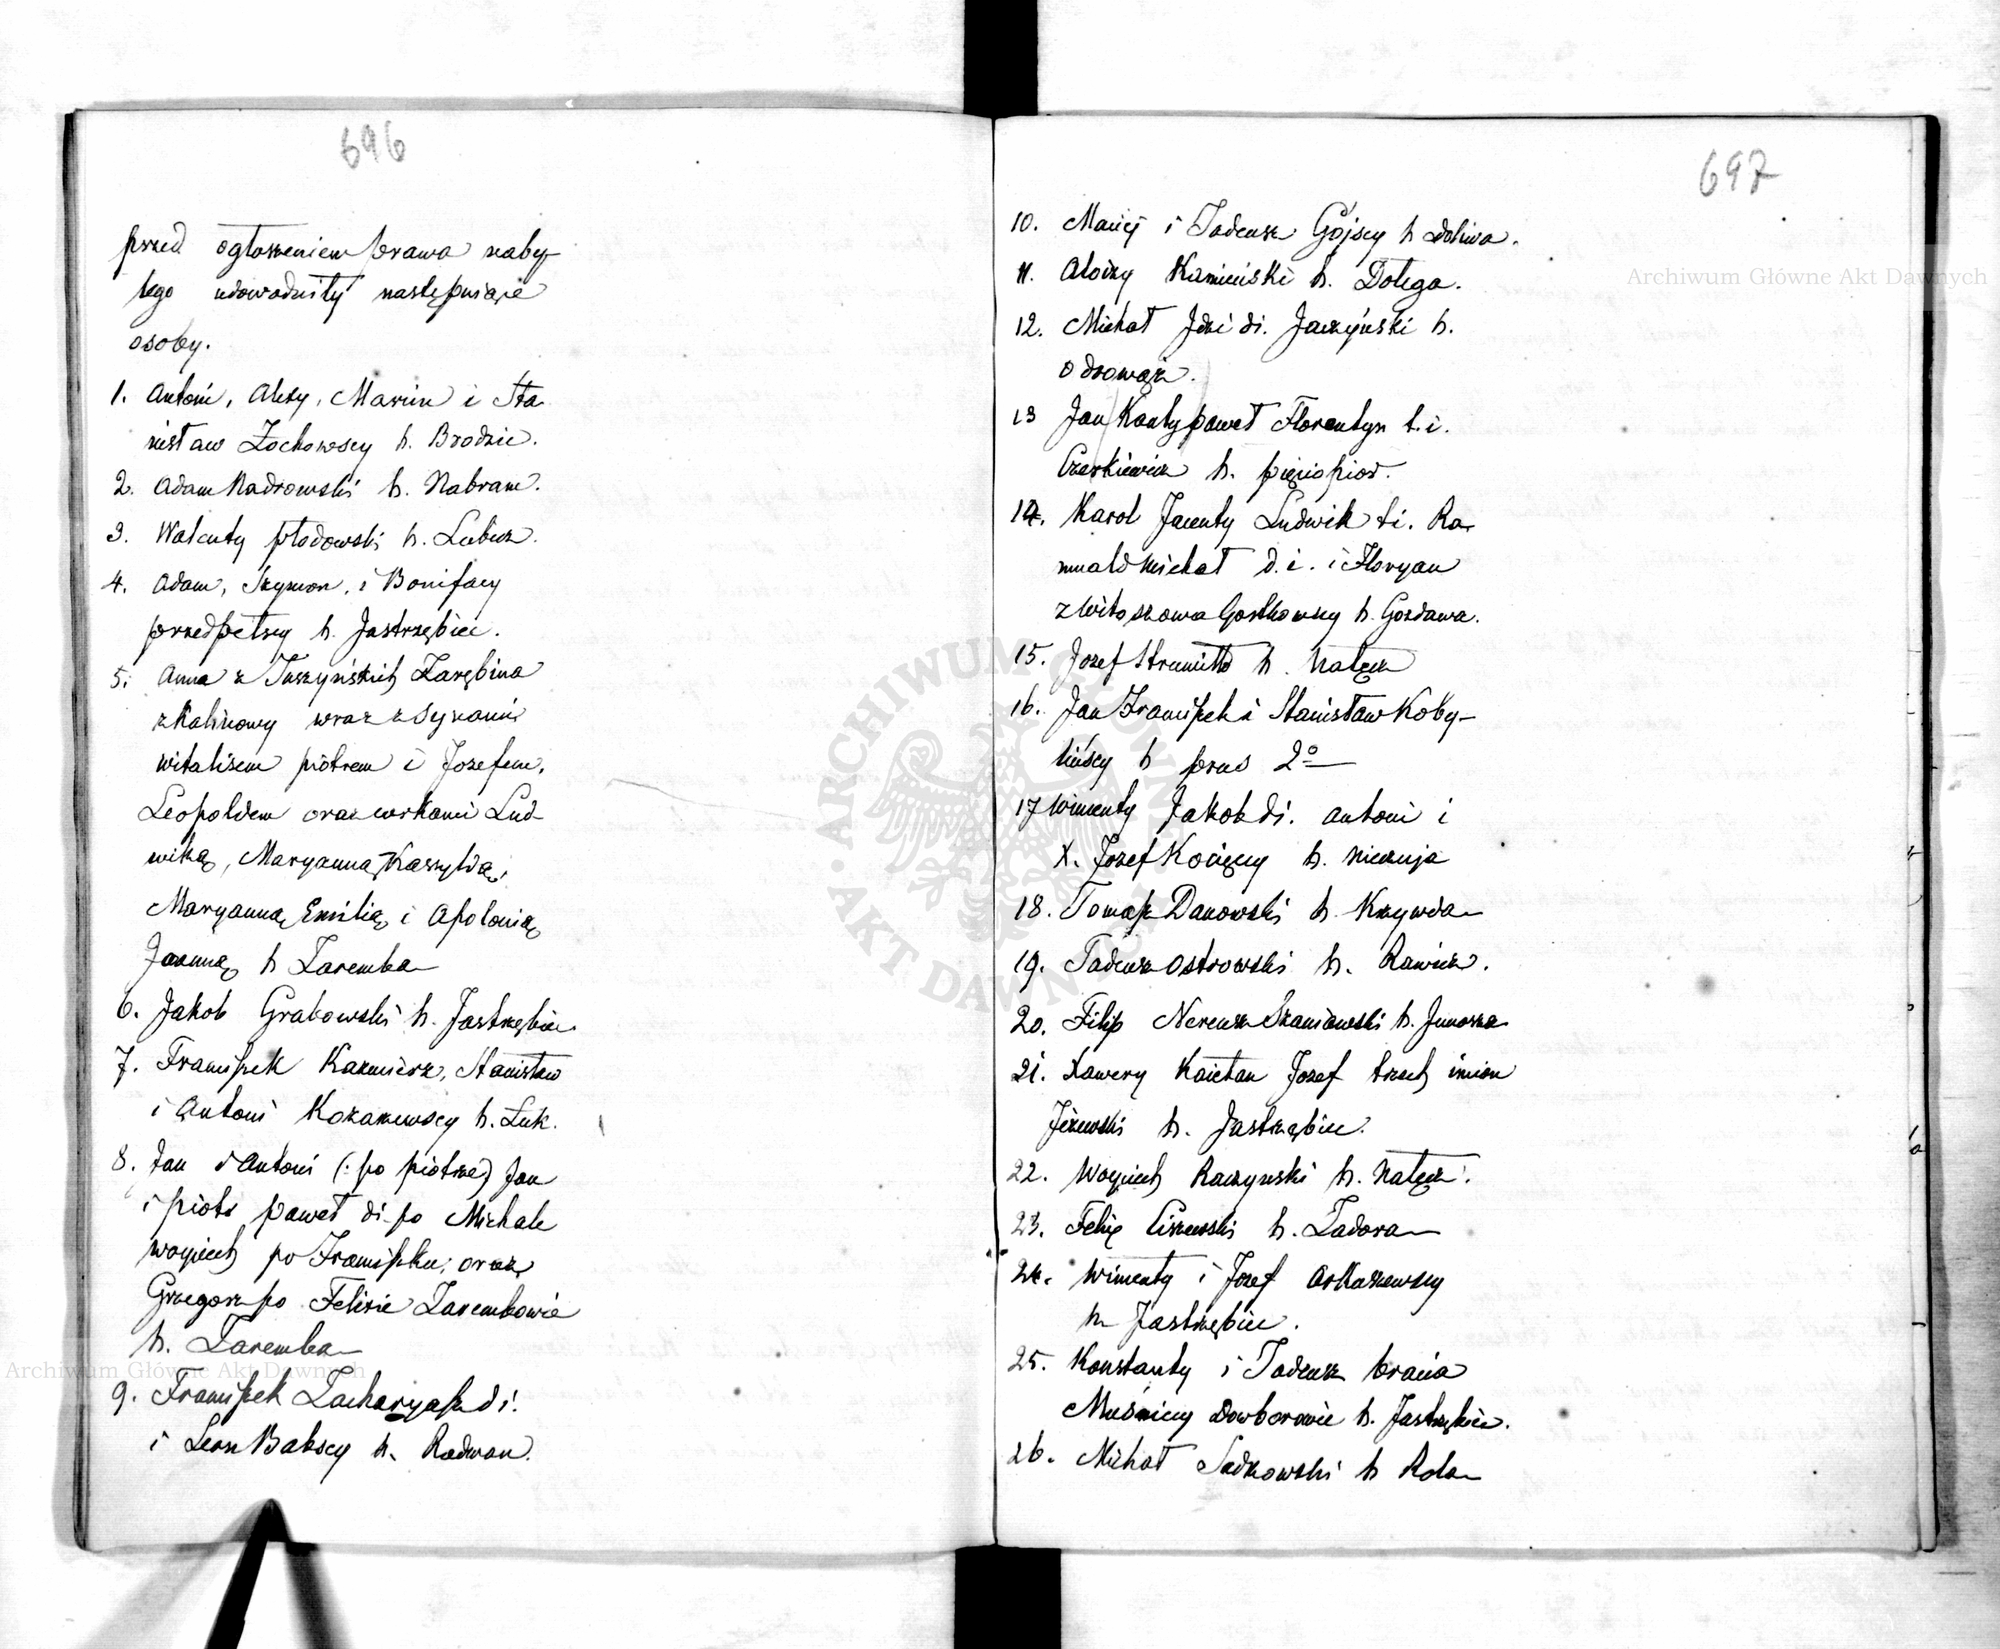 696
przed ogłoszeniem prawa naby-
tego udowodniły następujące
osoby.
1. Antoni, Alexy, Marcin i Sta
nisław Żochowscy h. Brodzic.
2. Adam Nadrowski h. Nabram.
3. Walenty płodowski h. Lubicz.
4. Adam, Szymon, i Bonifacy
przedpełscy h. Jastrzębiec.
5. Anna z Tuszyńskich Zarębina
z Kalinowy wraz z synami
witalisem piotrem i Jozefem,
Leopoldem oraz curkami Lud-
wiką, Maryanną Kassyldą,
Maryanną Emilią i Apolonią
Joanną h Zaremba
6. Jakob Grabowski h. Jastrzębiec
7. Franciszek Kazmierz, Stanisław
i Antoni Kozarzewscy h. Łuk.
8. Jan i Antoni (: po piotrze) Jan
i piotr paweł di. po Michale
woyciech po Franciszku, oraz
Grzegorz po Felixie Zarembowie
h. Zaremba
9. Franciszek Zacharyasz di.
i Leon Babscy h. Radwan.
697
10. Maciej i Tadeusz Gojscy h Doliwa.
11. Aloizy Kamieński h. Dołęga.
12. Michał Jdzi di. Jaczyński h.
odrowąż.
13 Jan Kanty paweł Florentyn t.i.
Czerkiewicz h. pięciopior.
14. Karol Jacenty Ludwik t.i. Ro-
muald Michał d.i. i Floryan
z Witoszowa Gostkowscy h. Gozdawa.
15. Jozef Strumiłło h. Nałęcz
16. Jan Franciszek i Stanisław Koby-
lińscy h prus 2º
17 Wincenty Jakob di. Antoni i
X. Jozef Kocięccy h. Nieczuja
18. Tomasz Danowski h. Krzywda
19. Tadeusz Ostrowski h. Rawicz.
20. Filip Nereusz Szaniawski h. Junosza
21. Xawery Kaietan Jozef trzech imion
Jeżewski h. Jastrzębiec.
22. Woyciech Raczynski h. Nałęcz.
23. Felix Ciszewski h. Zadora
24. Wincenty i Jozef Arkuszewscy
h Jastrzębiec.
25. Konstanty i Tadeusz bracia
Muśniccy Dowborowie h. Jastrzębiec.
26. Michał Sadkowski h Rola
Archiwum Główne Akt Dawnych
Archiwum Główne Akt Dawnych
ARCHIWUM GŁÓWNE AKT DAWNYCH